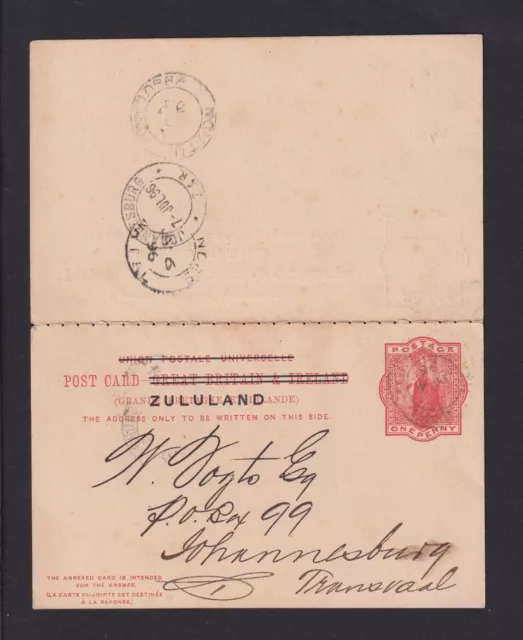 JOHANNESBURG
ZAR
7 JUL 96
UNION POSTALE UNIVERSELLE
POST CARD GREAT BRITAIN & IRELAND
ZULULAND
THE ADDRESS ONLY TO BE WRITTEN ON THIS SIDE.
POSTAGE
ONE PENNY
W. Vogts Esq
P.O. Box 99
Johannesburg
Transvaal
THE ANNEXED CARD IS INTENDED
FOR THE ANSWER.
(LA CARTE CI-JOINTE EST DESTINÉE
À LA RÉPONSE.)